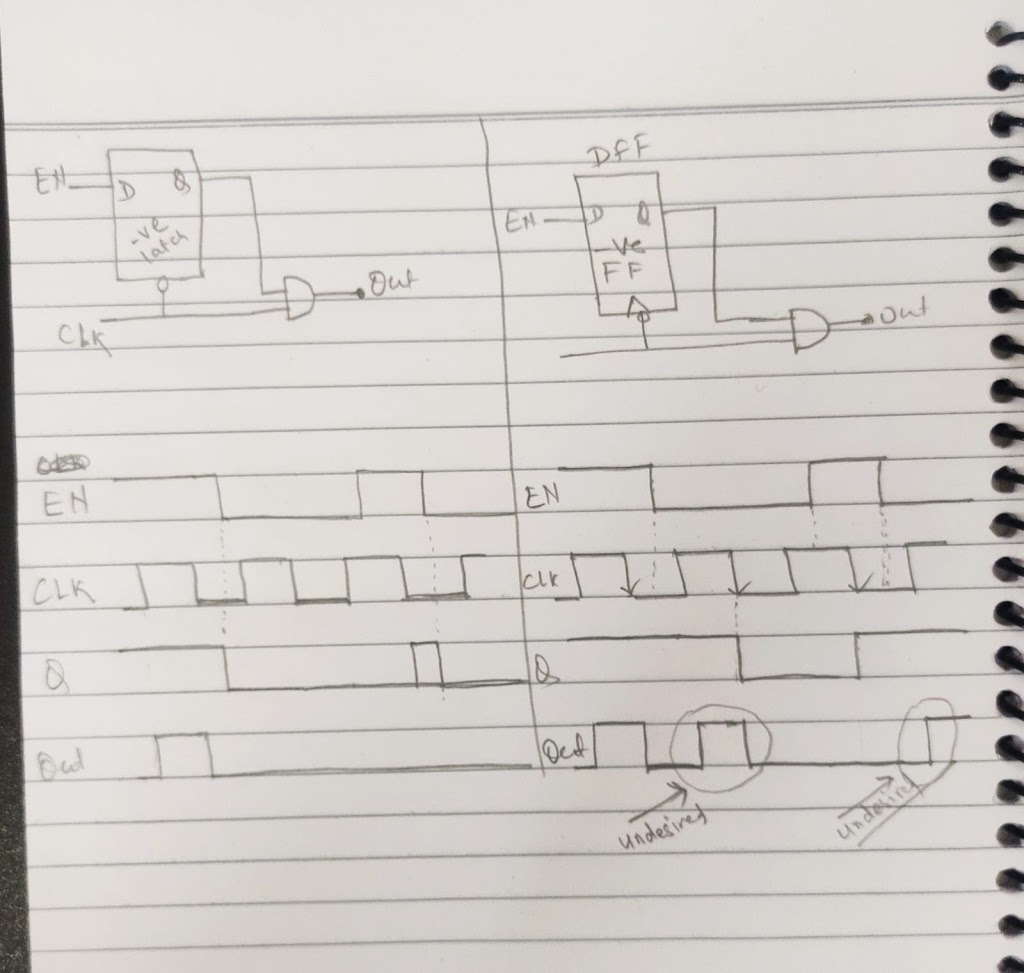 DFF
EN
D Q
-ve
latch
Out
CLK
EN
D Q
-ve
FF
Out
EN
CLK
Q
Out
EN
CLK
Q
Out
undesired
undesired